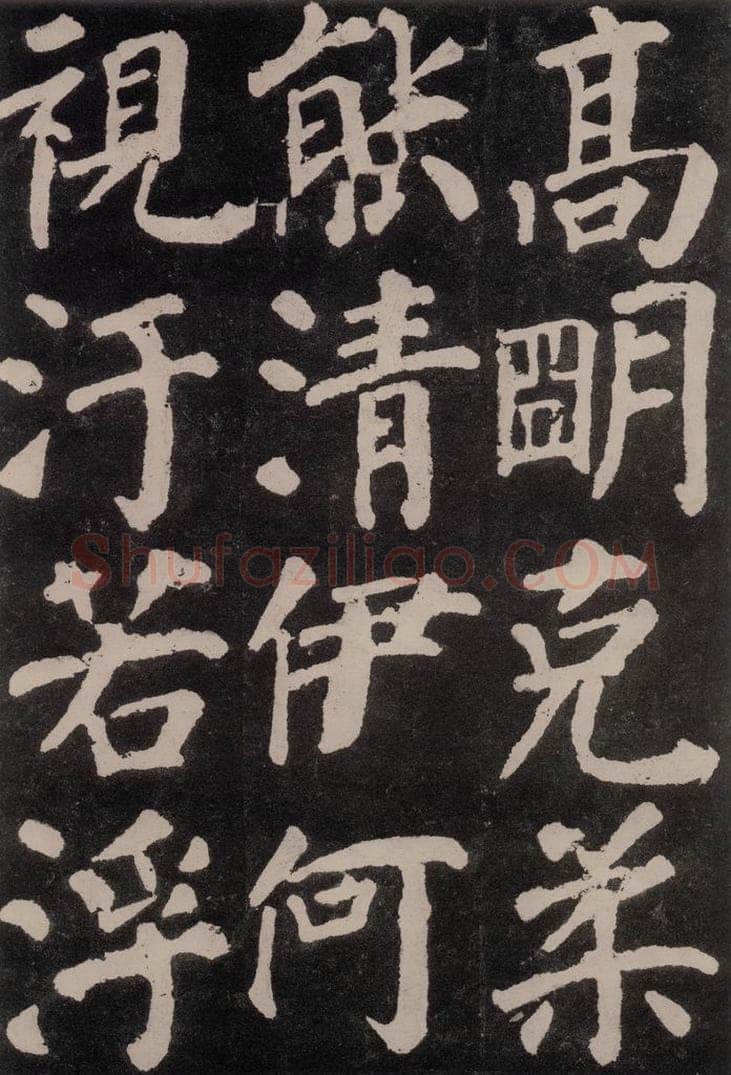 高明克柔
能清伊何
視汙若浮
Shufaziliao.COM